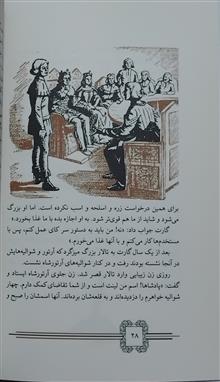 برای همین درخواست زره و اسلحه و اسب نکرده است. اما او بزرگ
می‌شود و شاید از ما هم قوی‌تر شود. به او اجازه بده با ما غذا بخورد.»
گارت جواب داد: «نه! من باید به دستور سر کای عمل کنم، پس با
مستخدم‌ها کار می‌کنم و با آنها غذا می‌خورم.»
بعد از یک سال گارت به تالار بزرگ میزگرد که آرتور و شوالیه‌هایش
در آنجا نشسته بودند رفت و و در کنار شوالیه‌های آرتورشاه نشست.
روزی زن زیبایی وارد تالار قصر شد. زن جلوی آرتورشاه ایستاد و
گفت: «پادشاها! اسم من لینت است و از شما تقاضای کمک دارم. چهار
شوالیه خواهرم را دزدیده‌اند و به قلعه‌شان برده‌اند. آنها اسمشان را صبح و
۲۸